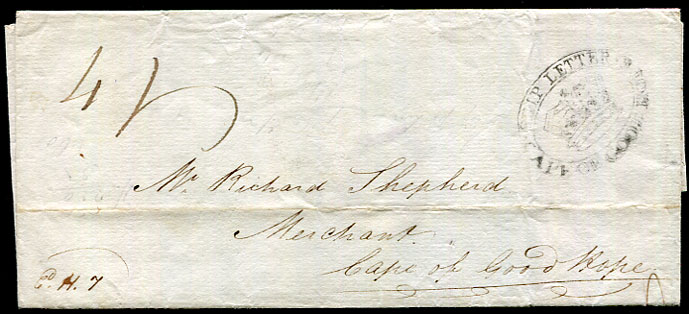 4
SHIP LETTER
CAPE OF GOOD HOPE
Mr Richard Shepherd
Merchant.
Cape of Good Hope
H. 7